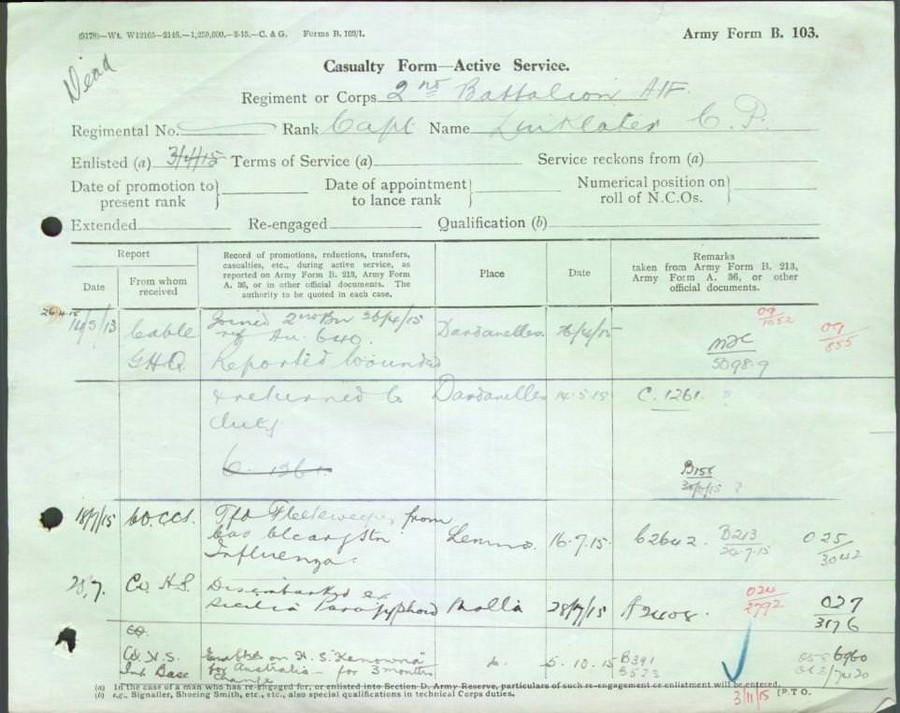 (9178)—Wt. W12165—2145.—1,250,000.—2-15.—C. & G. Forms B. 103/1.
Army Form B. 103.
Dead
Casualty Form—Active Service.
Regiment or Corps 2nd Battalion AIF.
Regimental No. Rank Capt Name Linklater C. P.
Enlisted (a) 3/4/15 Terms of Service (a) Service reckons from (a)
Date of promotion to present rank } Date of appointment to lance rank } Numerical position on roll of N.C.Os. }
Extended Re-engaged Qualification (b)
Report
Date
From whom received
Record of promotions, reductions, transfers,
casualties, etc., during active service, as
reported on Army Form B. 213, Army Form
A. 36, or in other official documents. The
authority to be quoted in each case.
Place
Date
Remarks
taken from Army Form B. 213,
Army Form A. 36, or other
official documents.
26.4.15
Joined 2nd Bn 26/4/15
14/5/15 Cable
Dardanelles
26/4/15
G.H.Q. Reported Wounded
5098.9
09/1852
09/855
& returned to duty
Dardanelles 14.5.15 C. 1261.
B155
18/7/15 CO. CCS.
from
Cas Clearg Stn
Influenza
Lemnos. 16.7.15. C2642. B213
20.7.15
025/3042
28.7. Co. H.S. Disembarked ex
Sicilia Para Typhoid Malta 28/7/15 A2408.
024/2792
027/3176
Co. H.S.
Int Base
on H.S. "Kanowna"
for Australia - for 3 months
change
do. 5.10.15 B391
5523
6960
3/11/15
(a) In the case of a man who has re-engaged for, or enlisted into Section D. Army Reserve, particulars of such re-engagement or enlistment will be entered.
(b) e.g., Signaller, Shoeing Smith, etc., etc., also special qualifications in technical Corps duties.
[P.T.O.